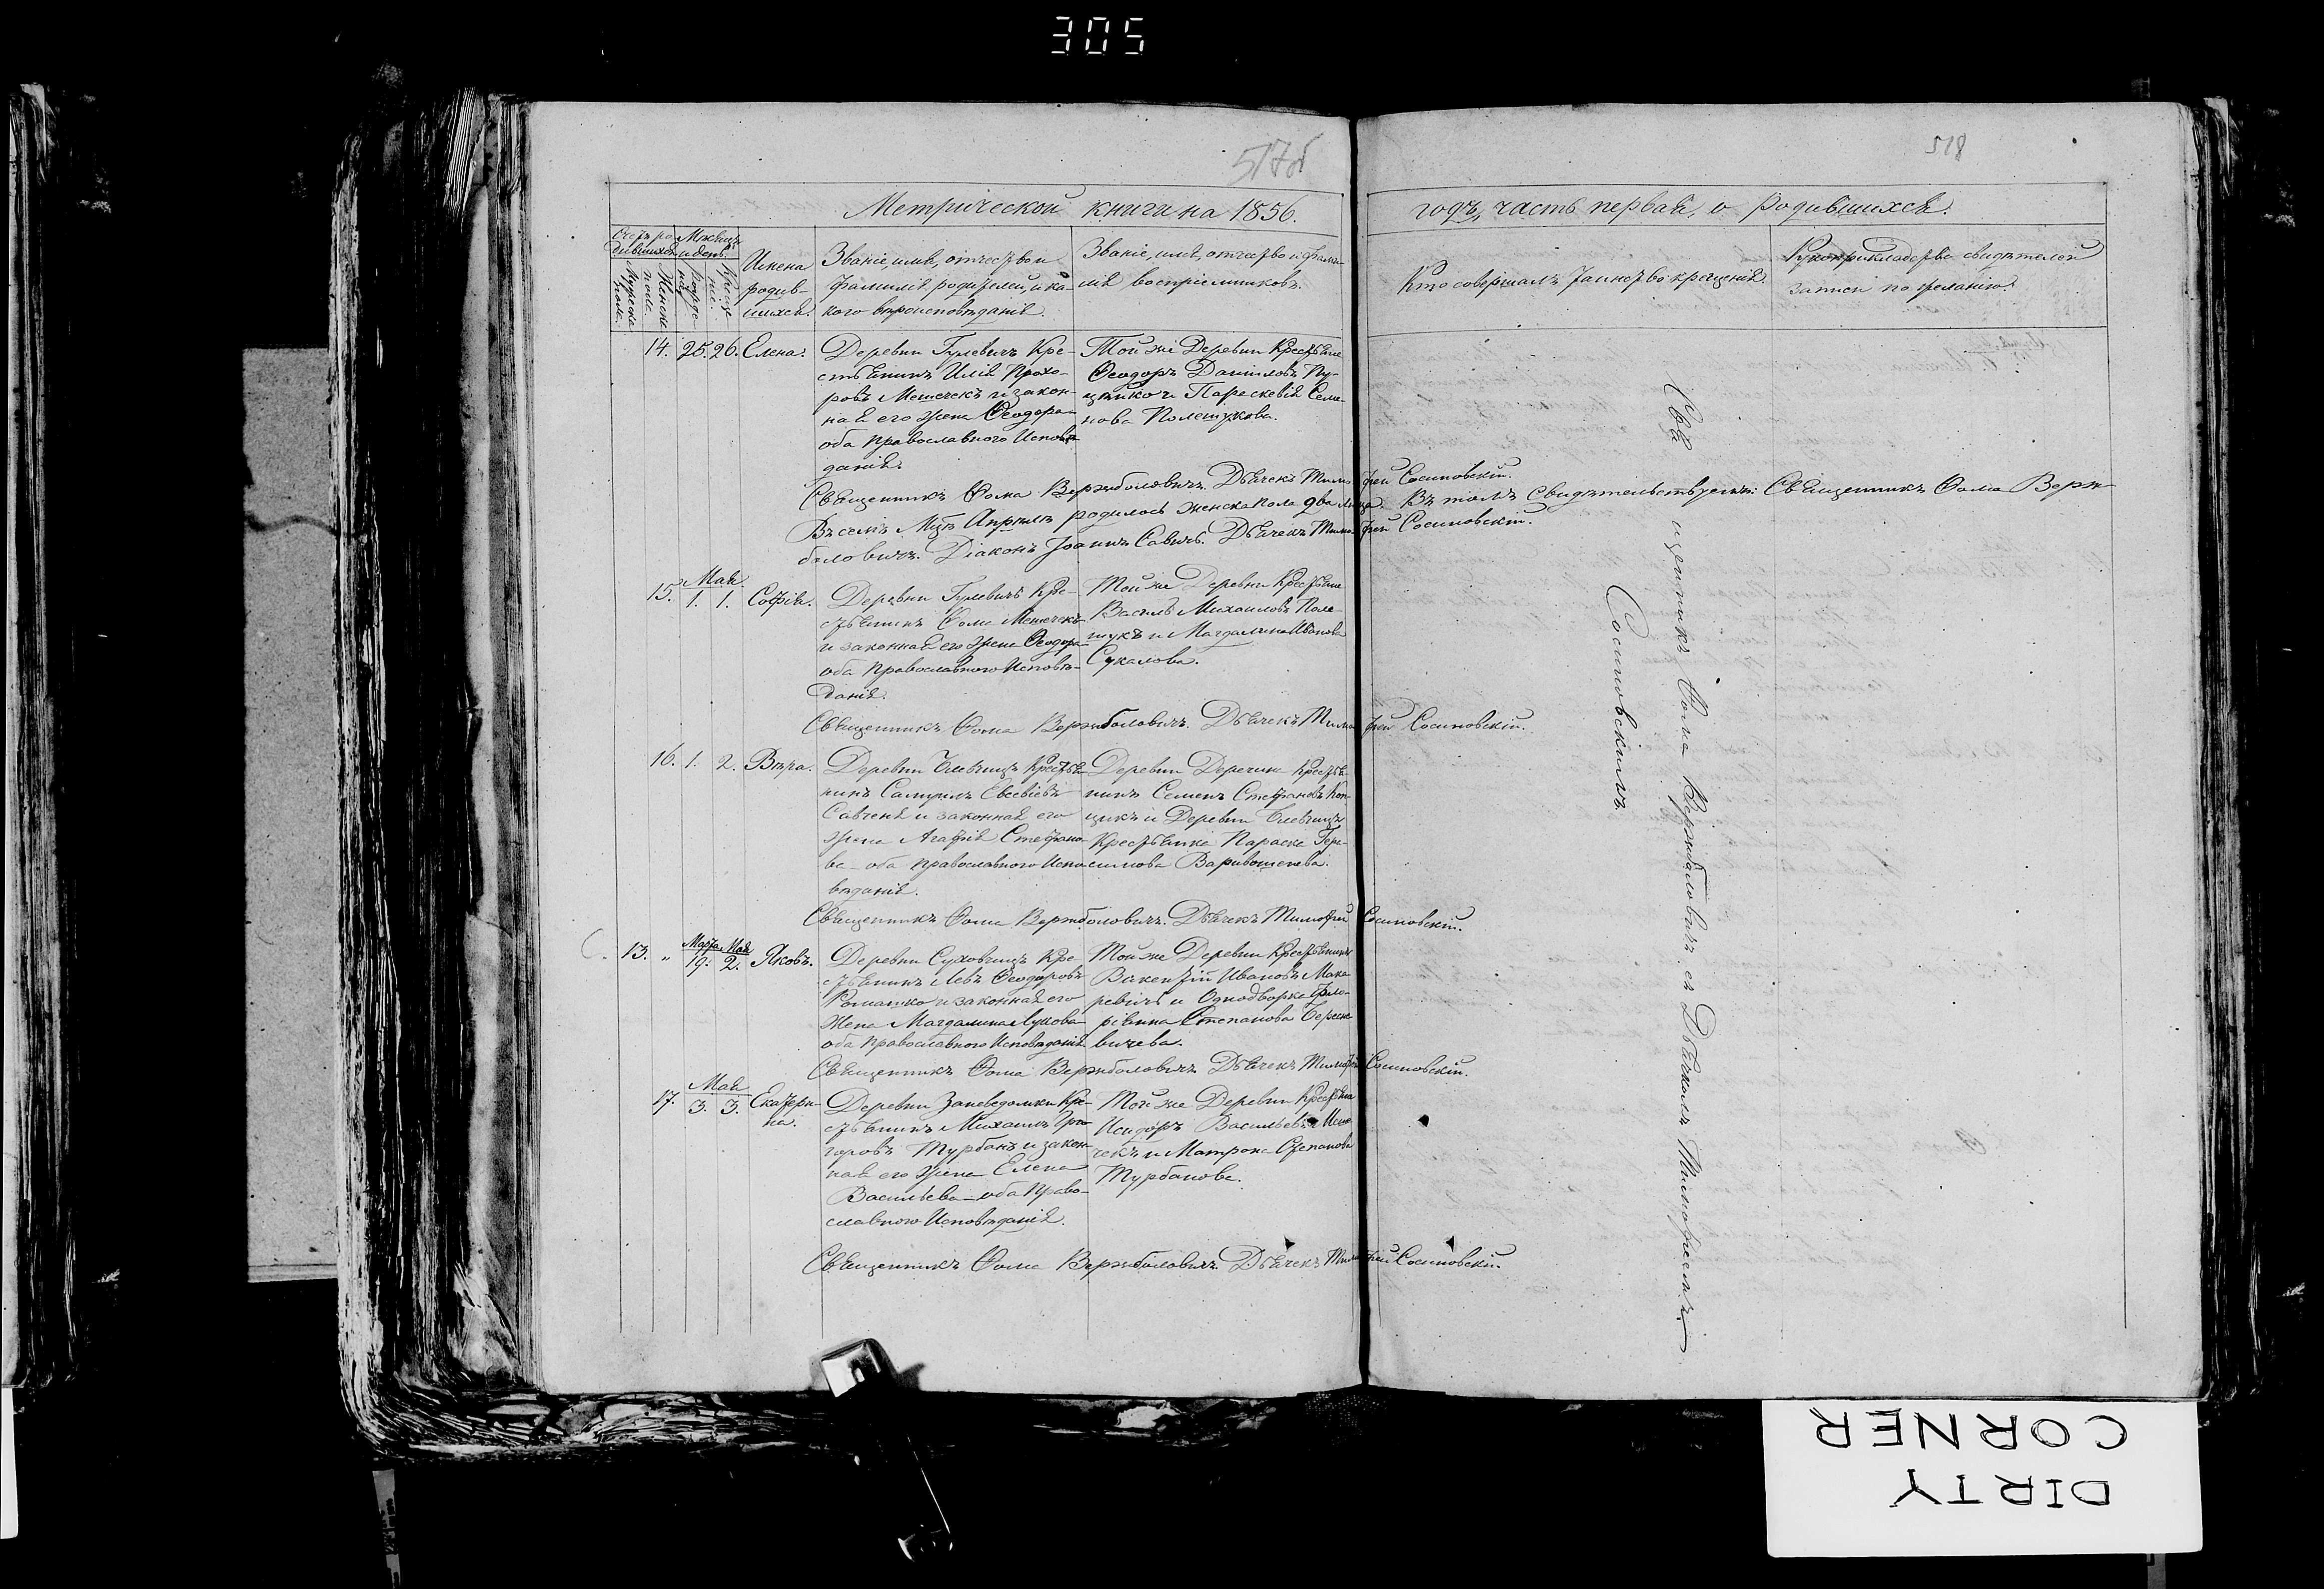 305
517об
518
Метрической книги на 1856.
годъ, часть первая, о родившихся.
Счетъ ро-
дившихся.
Мѣсяцъ
и день.
Мужеска
пола.
Женска
пола.
Рожде-
нія.
Креще-
нія.
Имена
родив-
шихся.
Званіе, имя, отчество и
фамилія родителей, и ка-
кого вѣроисповѣданія.
Званіе, имя, отчество и фами-
лія воспріемниковъ.
Кто совершалъ таинство крещенія.
Рукоприкладство свидѣтелей
записи по желанію.
14. 25. 26. Елена.
Деревни Гулевичъ Кре-
стьянинъ Илія Прохо-
ровъ Мешечекъ и закон-
ная его жена Ѳеодора
оба православного Исповѣ-
данія.
Той же Деревни Крестьяне
Ѳеодоръ Даніиловъ
и Параскевія Семе-
нова Полещукова.
Священникъ Ѳома Вержболовичъ. Дьячекъ Тимофей Сосиновскій.
Въ семъ Мцѣ Апрѣлѣ родилось женска пола два лица. Въ томъ свидѣтельствуемъ: Священникъ Ѳома Верж-
боловичъ. Діаконъ Іоаннъ Савичъ. Дьячекъ Тимофей Сосиновскій.
Мая
15. 1. 1. Софія.
Деревни Гулевичъ Кре-
стьянинъ Ѳома Мешечекъ
и законная его жена Ѳеодора
оба православного Исповѣ-
данія.
Той же Деревни Крестьяне
Василь Михаиловъ Поле-
щукъ и Магдалина Иванова
Сукалова.
Священникъ Ѳома Вержболовичъ. Дьячекъ Тимофей Сосиновскій.
16. 1. 2. Вѣра.
Деревни Крестья-
нинъ Самуилъ Евсевіевъ
Савченя и законная его
жена Агафія Стефано-
ва оба православного Испо-
вѣданія.
Деревни Деречина Крестья-
нинъ Семенъ Стефановъ Коп-
цикъ и Деревни
Крестьянка Параска Гера-
симова
Священникъ Ѳома Вержболовичъ. Дьячекъ Тимофей Сосиновскій.
С. 13. „ Марта 19. Мая 2. Яковъ.
Деревни Суховчицъ Кре-
стьянинъ Левъ Ѳеодоровъ
Ромашко и законная его
Жена Магдалина Лукова
оба православного Исповѣданія.
Той же Деревни Крестьянинъ
Викентій Ивановъ Мака-
ревичъ и Однодворка Фло-
ріанна Степанова Бережне-
вичева.
Священникъ Ѳома Вержболовичъ Дьячекъ Тимофей Сосиновскій.
Мая
17. 3. 3. Екатери-
на.
Деревни Заневедомки Кре-
стьянинъ Михаилъ Гри-
горовъ Турбанъ и закон-
ная его жена Елена
Васильева оба Право-
славного Исповѣданія.
Той же Деревни Крестьяне
Исидоръ Васильевъ
и Матрона Степанова
Турбанова.
Священникъ Ѳома Вержболовичъ. Дьячекъ Тимофей Сосиновскій.
Священникъ Ѳома Вержболовичъ съ Дьячкомъ Тимофеемъ
Сосиновскимъ.
DIRTY
CORNER